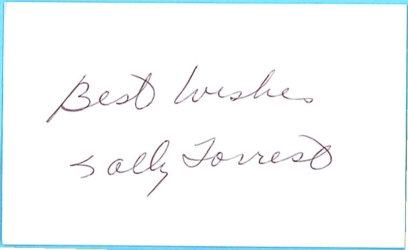 Best Wishes
Sally Forrest